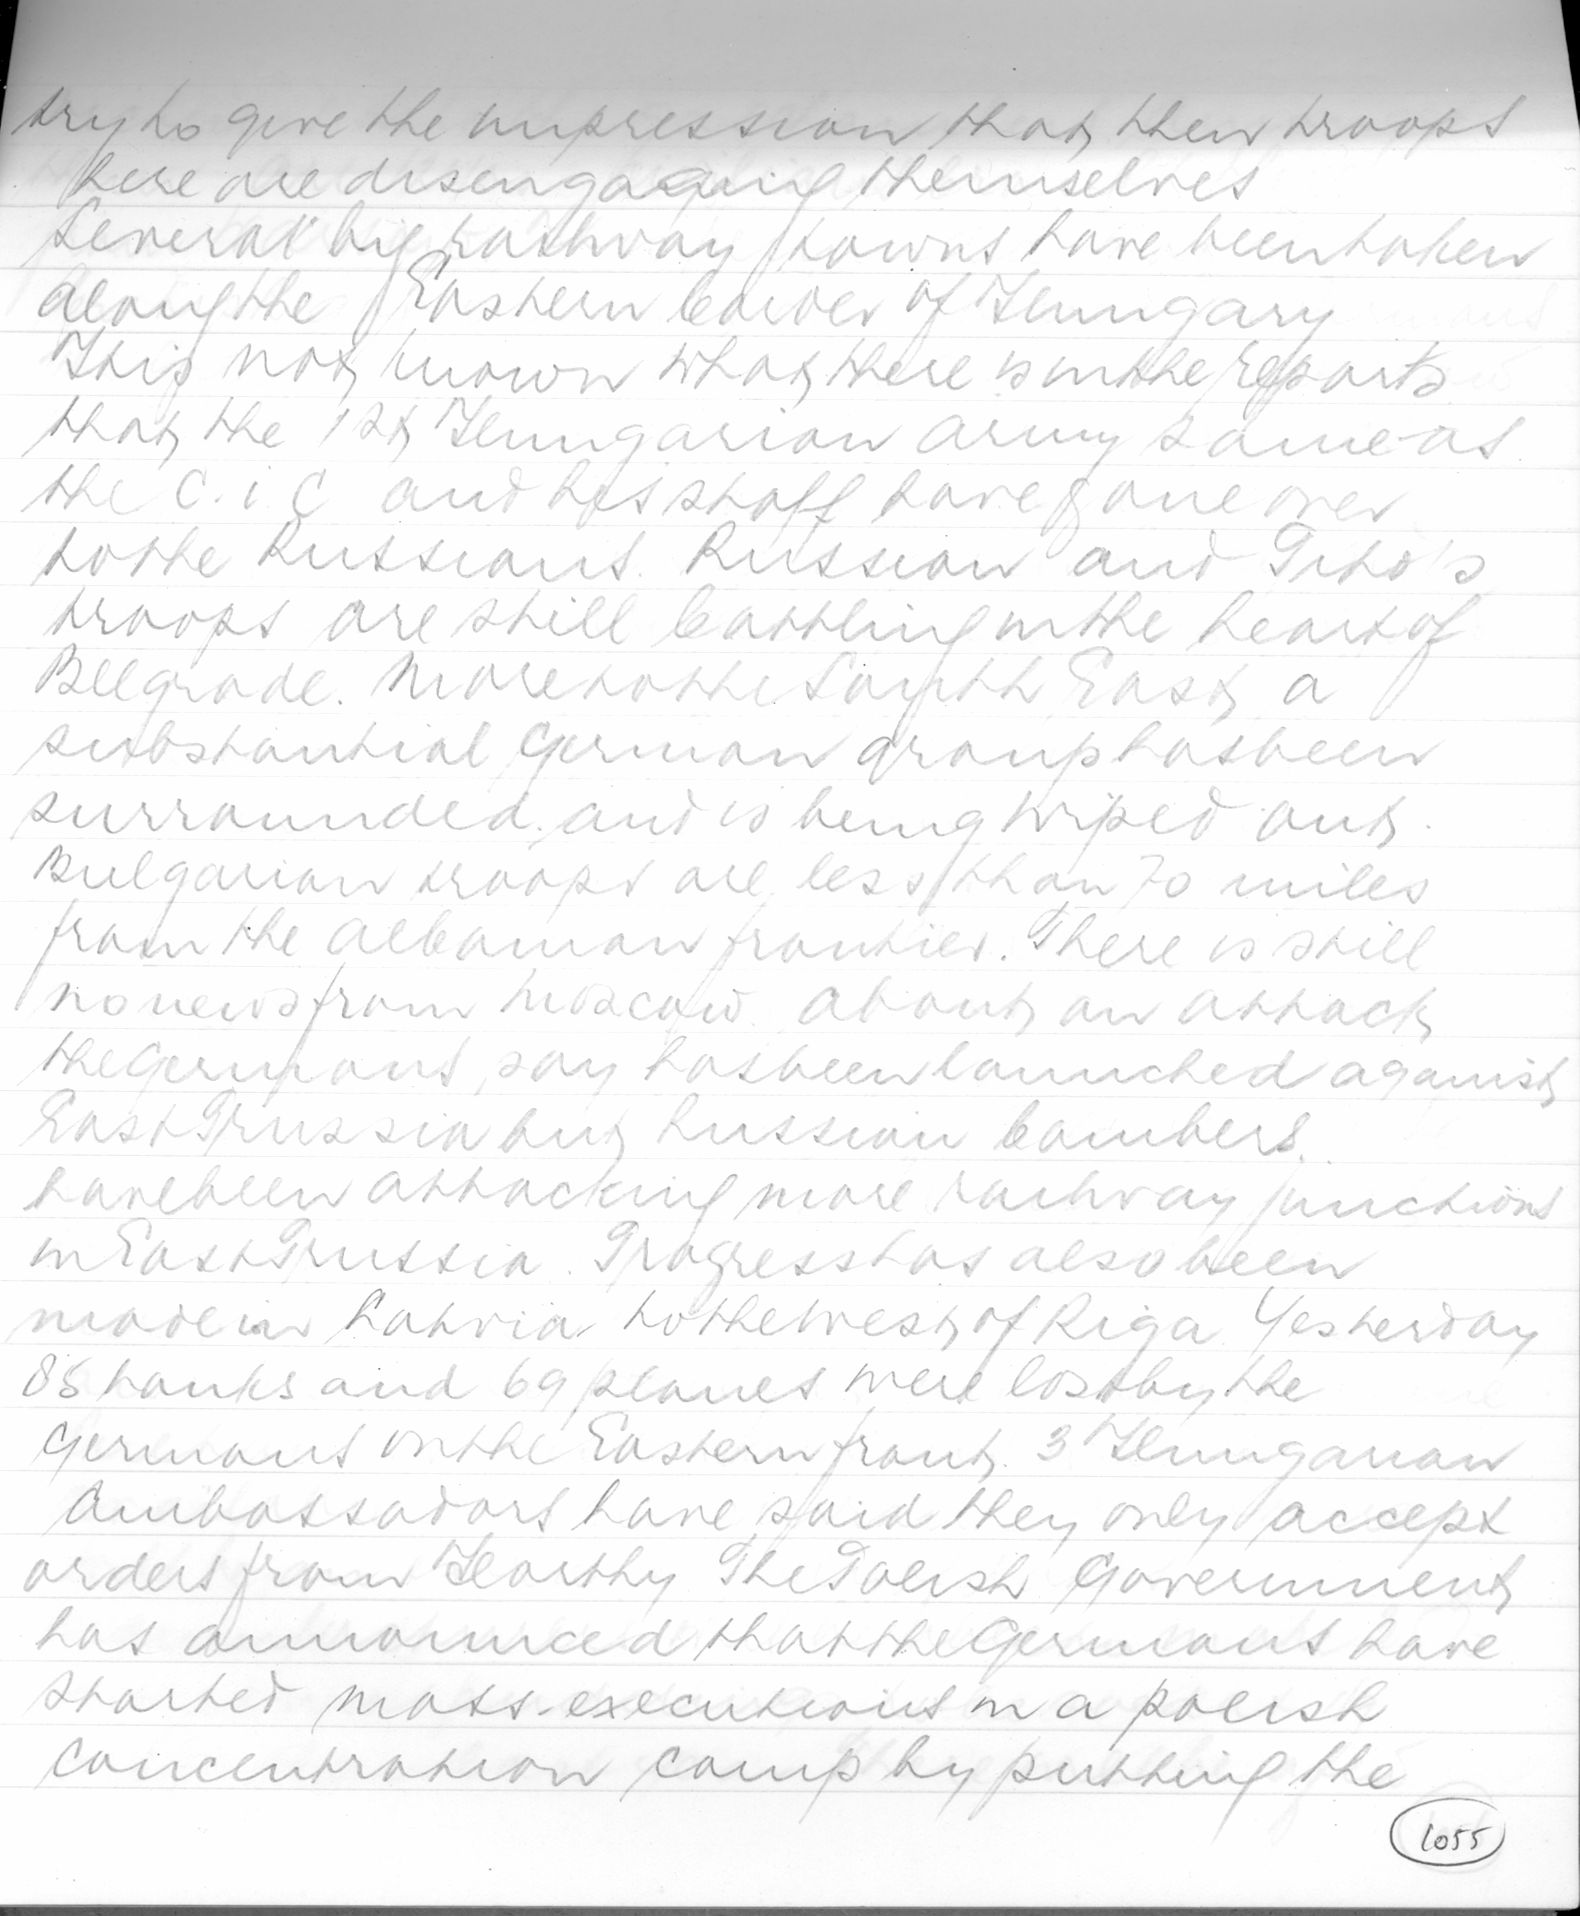 try to give the impression that their troops
here are disengaging themselves
Several big railway towns have been taken
along the Eastern border of Hungary
It is not known what there is in the reports
that the 1st Hungarian army same as
the C. i. C and his staff have gone over
to the Russians. Russian and Tito's
troops are still battling in the heart of
Belgrade. More to the South East a
substantial German group has been
surrounded and is being wiped out.
Bulgarian troops are less than 70 miles
from the Albanian frontier. There is still
no news from Moscow about an attack
the Germans say has been launched against
East Prussia but Russian bombers
have been attacking more railway junctions
in East Prussia. Progress has also been
made in Latvia to the West of Riga Yesterday
85 tanks and 69 planes were lost by the
Germans on the Eastern front. 3 Hungarian
Ambassadors have said they only accept
orders from Horthy The Polish Government
has announced that the Germans have
started mass-executions in a polish
concentration camp by putting the
1055